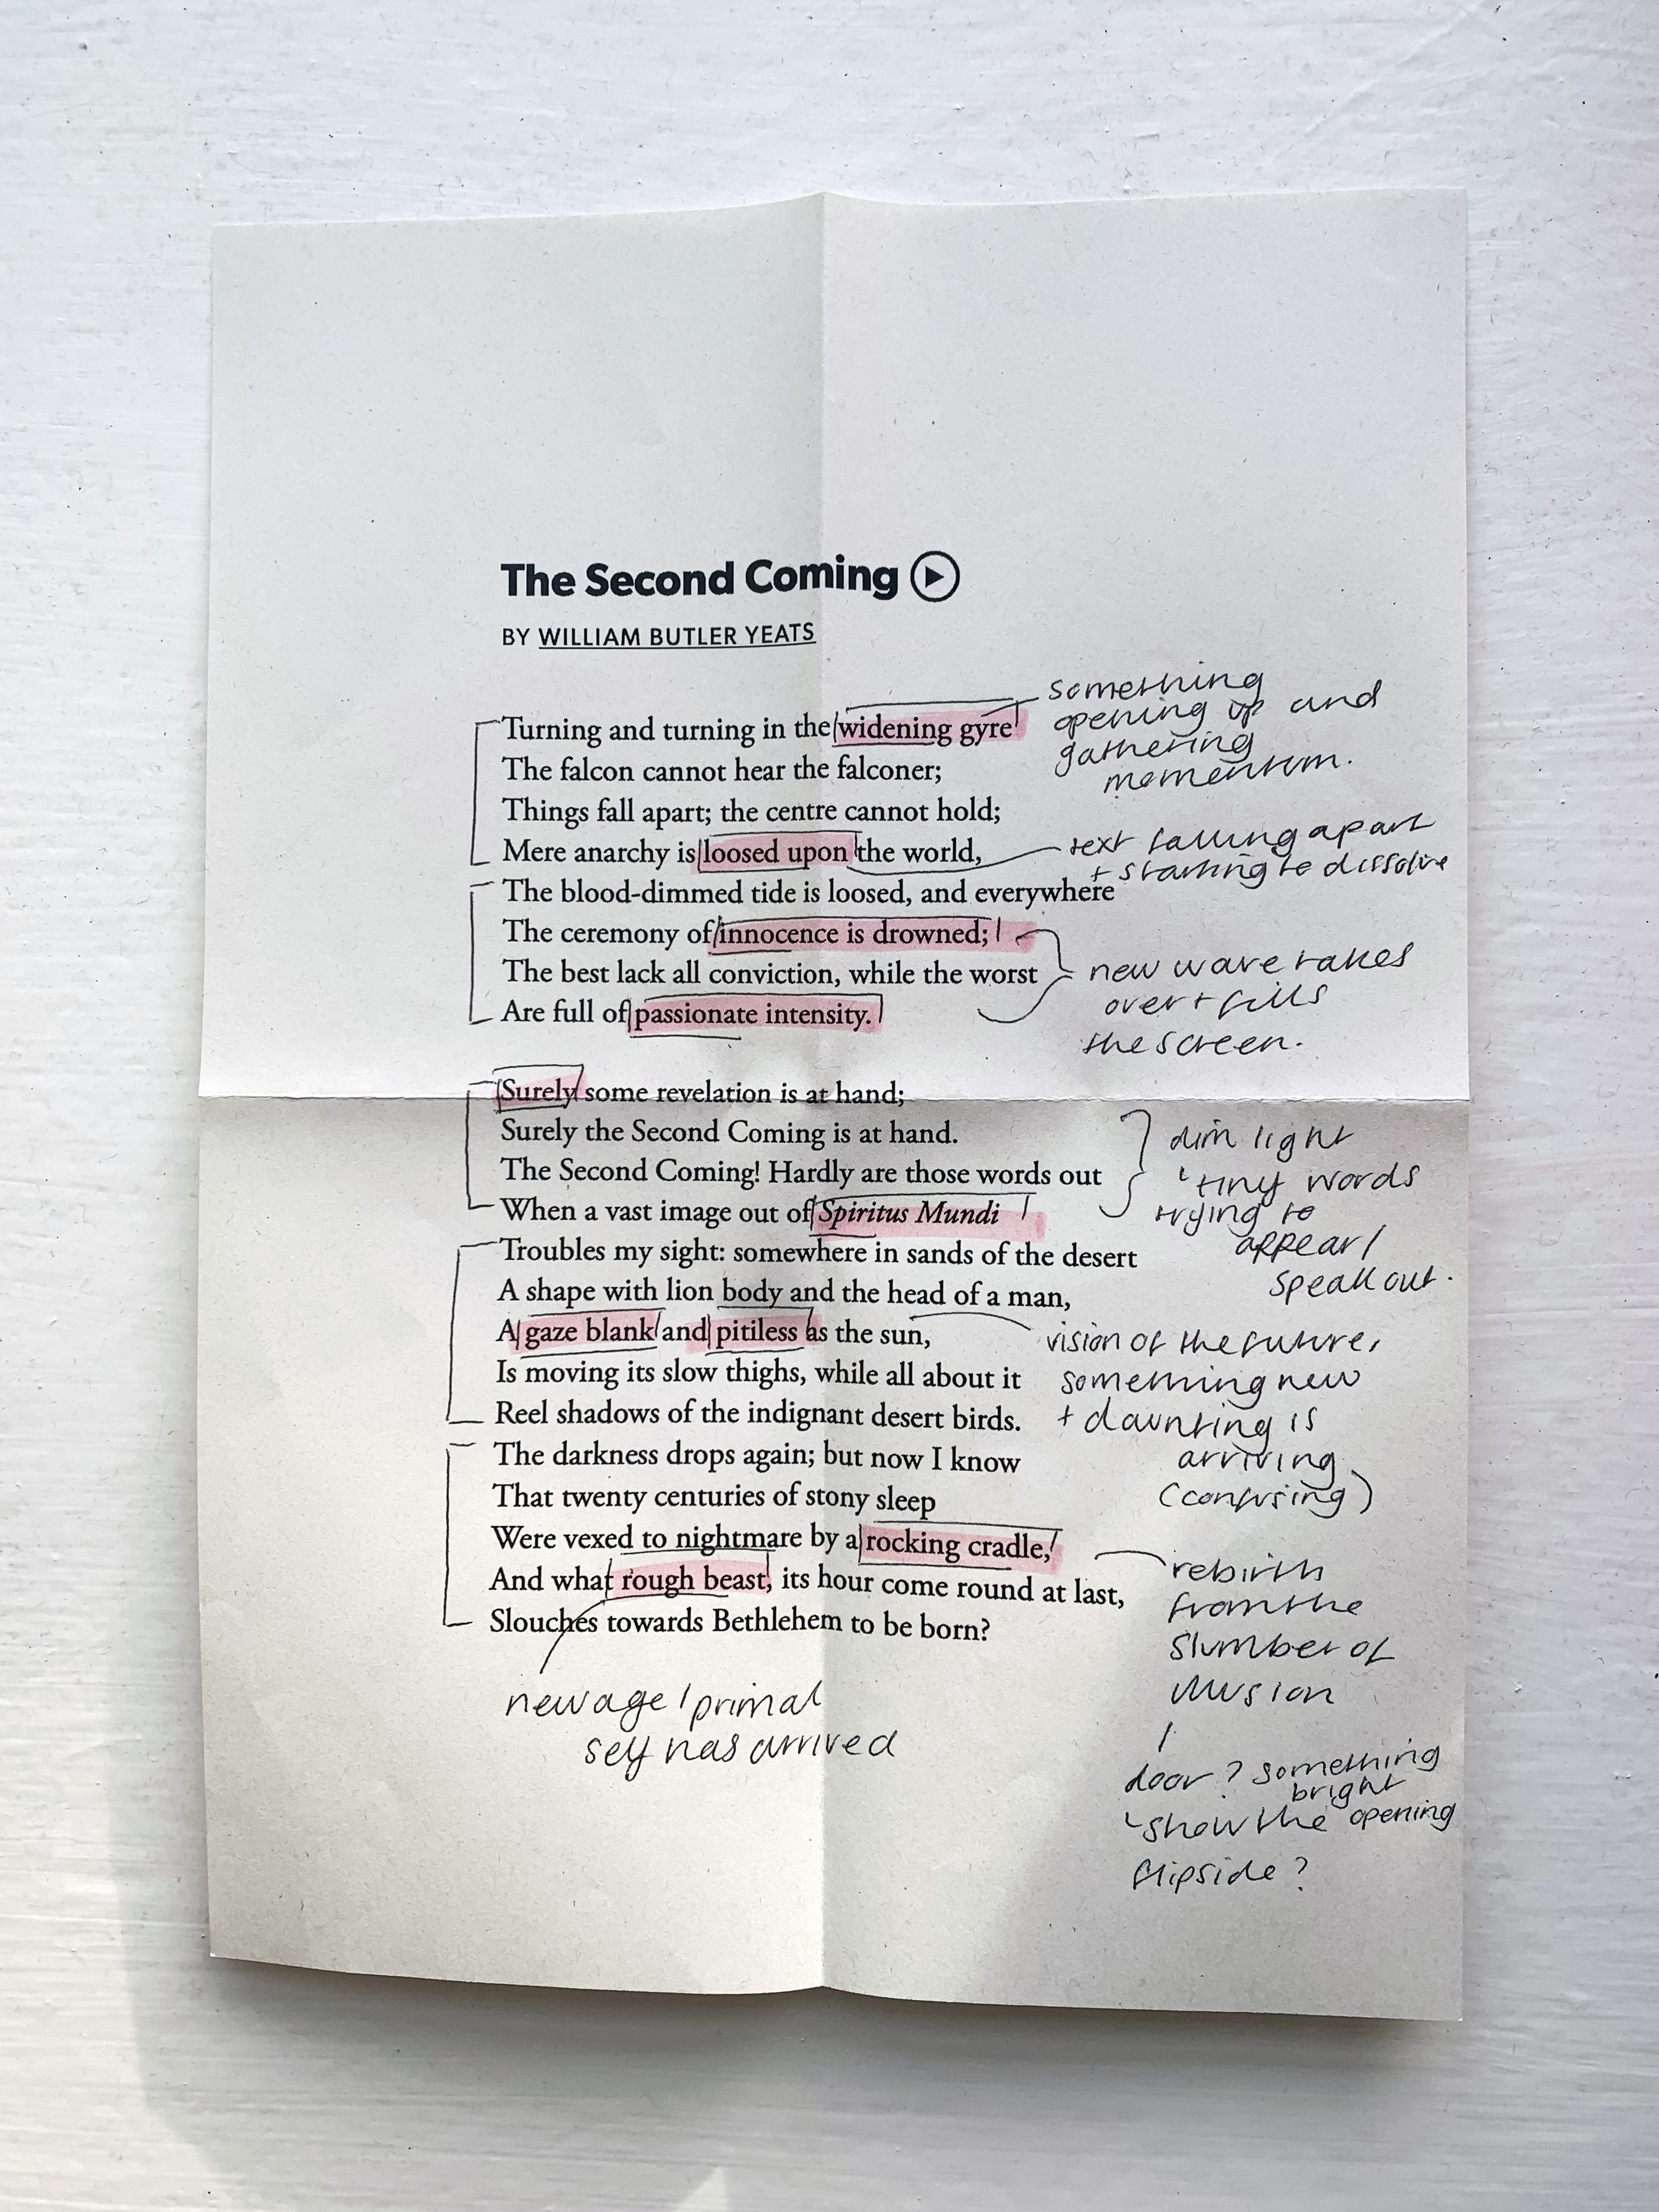 The Second Coming
BY WILLIAM BUTLER YEATS
Turning and turning in the widening gyre
The falcon cannot hear the falconer;
Things fall apart; the centre cannot hold;
Mere anarchy is loosed upon the world,
The blood-dimmed tide is loosed, and everywhere
The ceremony of innocence is drowned;
The best lack all conviction, while the worst
Are full of passionate intensity.
something
opening up and
gathering
momentum.
text falling apart
+ starting to dissolve
new wave takes
over + fills
the screen.
Surely some revelation is at hand;
Surely the Second Coming is at hand.
The Second Coming! Hardly are those words out
When a vast image out of Spiritus Mundi
Troubles my sight: somewhere in sands of the desert
A shape with lion body and the head of a man,
A gaze blank and pitiless as the sun,
Is moving its slow thighs, while all about it
Reel shadows of the indignant desert birds.
The darkness drops again; but now I know
That twenty centuries of stony sleep
Were vexed to nightmare by a rocking cradle,
And what rough beast, its hour come round at last,
Slouches towards Bethlehem to be born?
dim light
tiny words
trying to
appear/
speak out.
vision of the future,
something new
+ daunting is
arriving
(confusing)
rebirth
from the
slumber of
illusion
door? something
bright
show the opening
flipside?
new age/primal
self has arrived